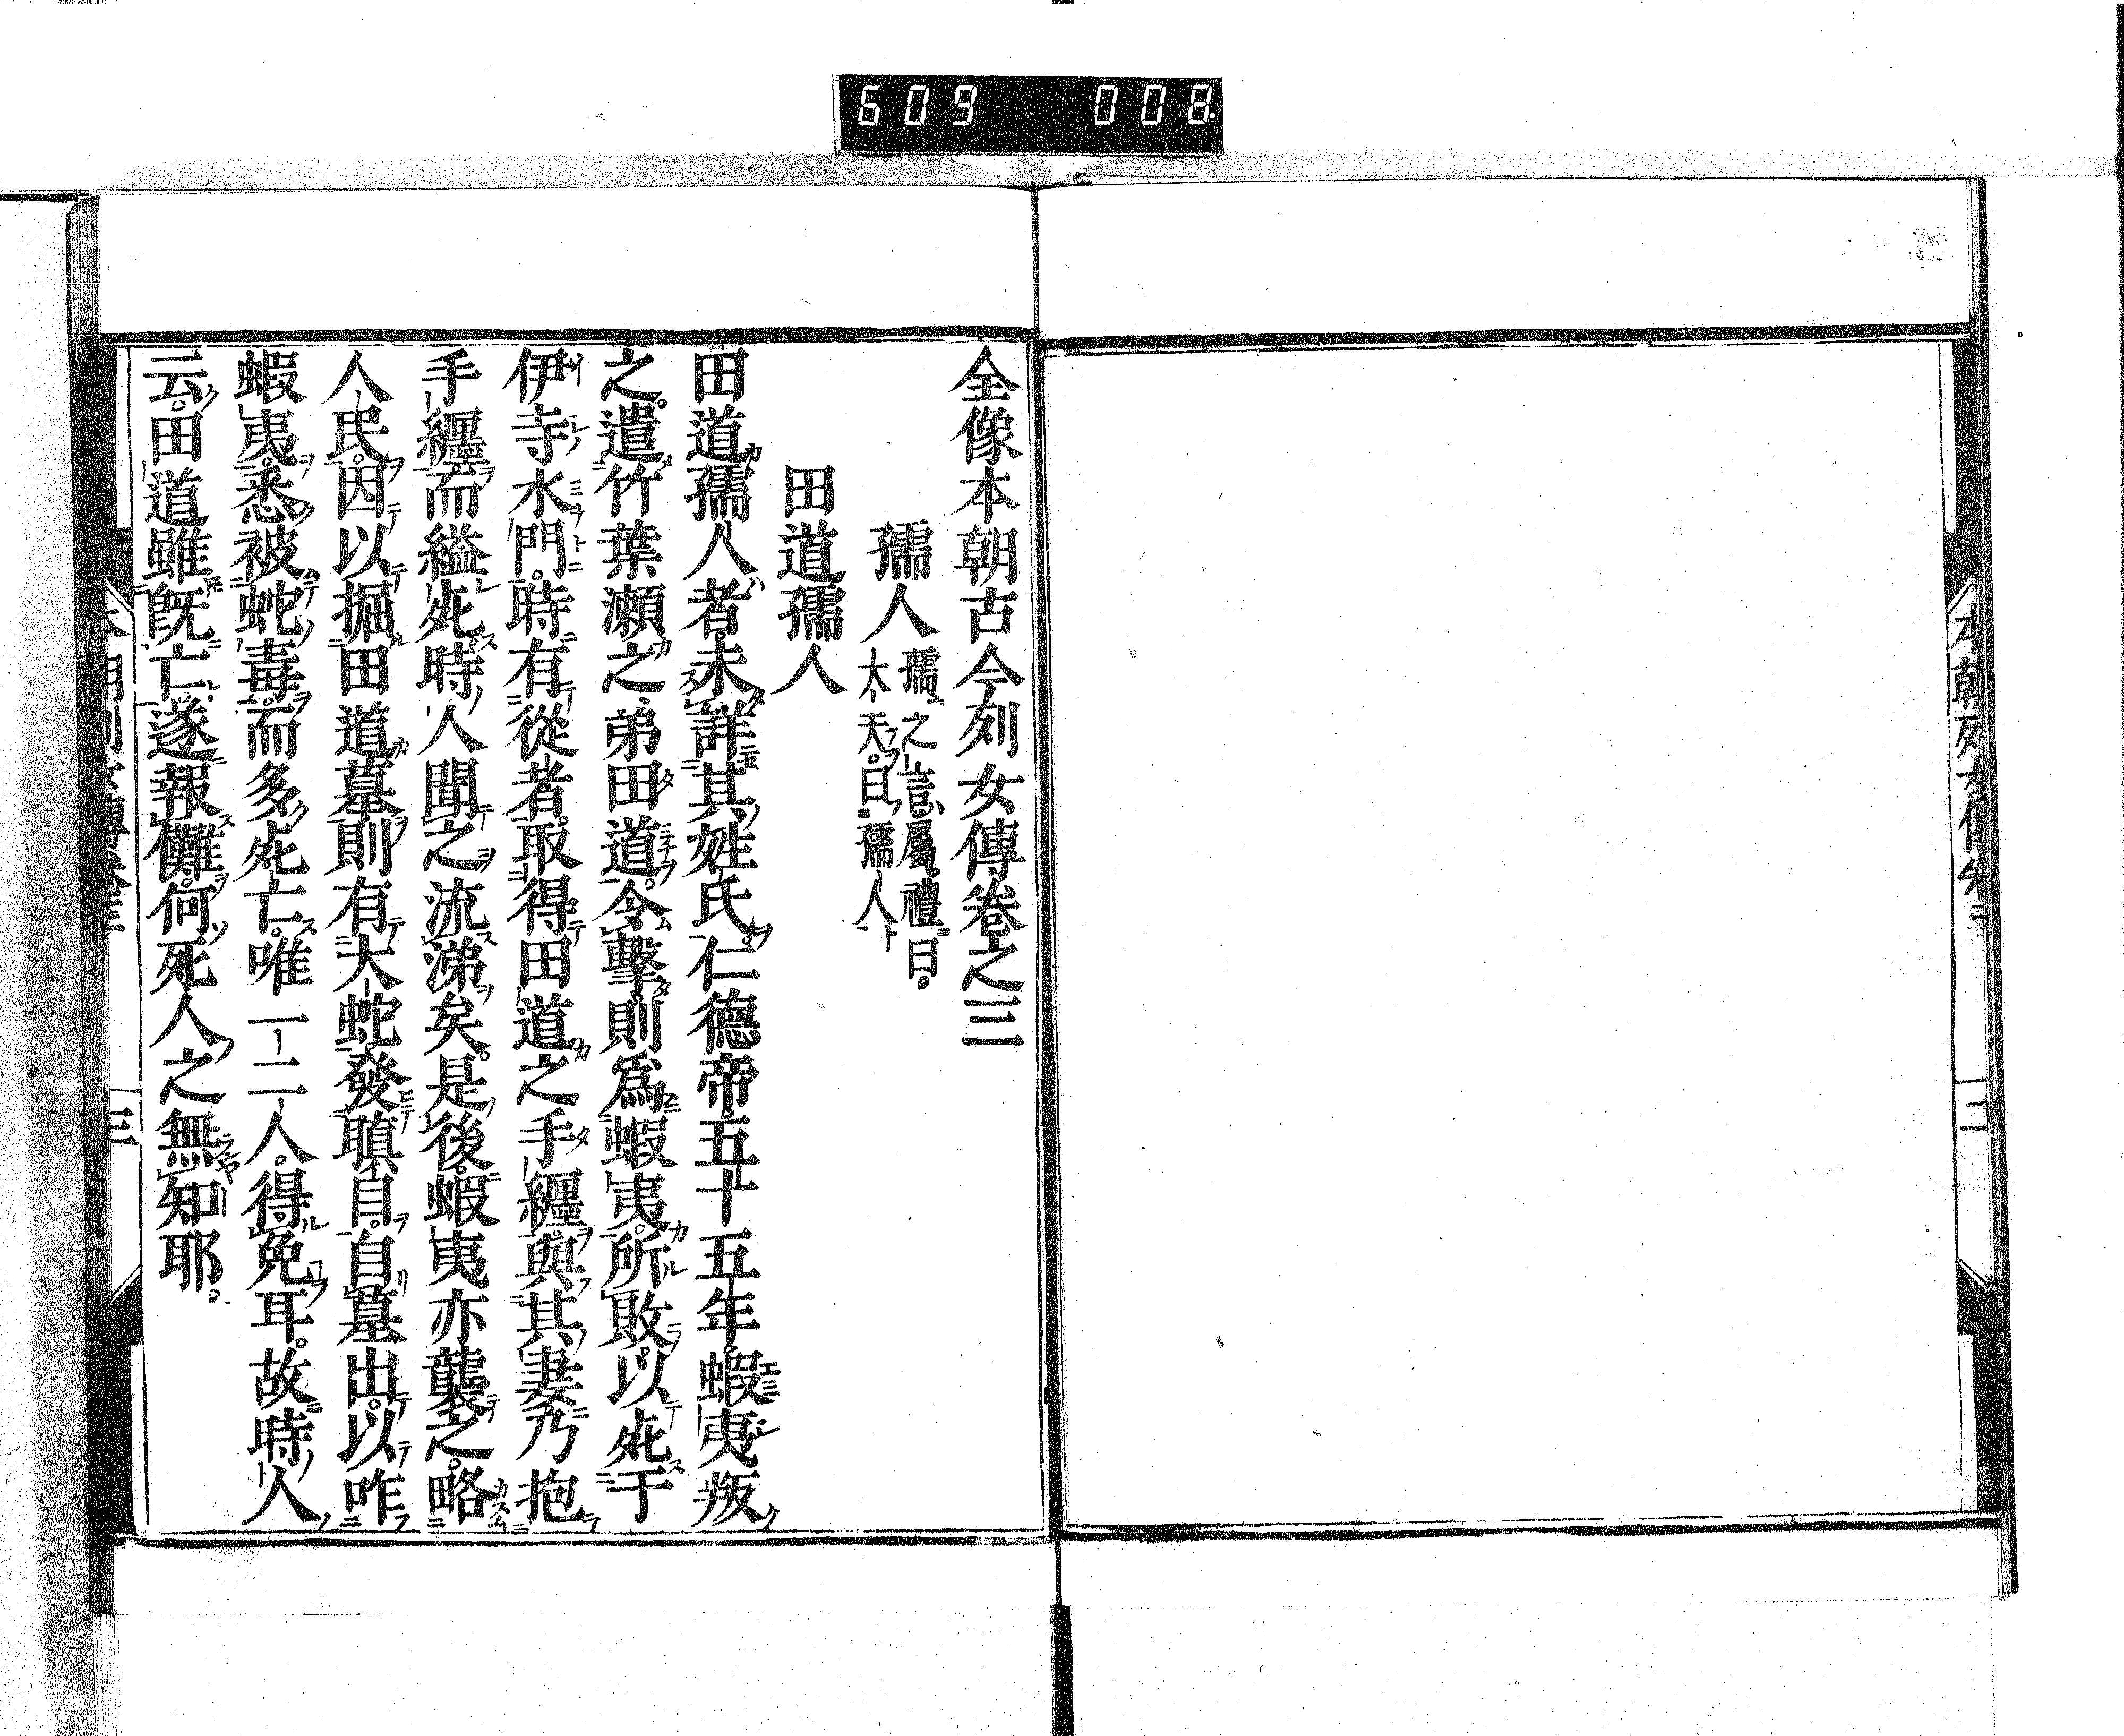 609 008
全像本朝古今列女傳卷之三
孺人孺之言屬禮曰。
大夫曰孺人
田道孺人
田道孺人者未詳其姓氏。仁德帝五十五年。蝦夷叛
之。遣竹葉瀨之弟田道。令擊。則爲蝦夷。所敗。以死于
伊寺水門。時有從者。取得田道之手纏。與其妻乃抱
手纏而縊死。時人聞之流涕矣。是後。蝦夷亦襲之。略
人民。因以掘田道墓。則有大蛇。發瞋目。自墓出。以咋
蝦夷。悉被蛇毒。而多死亡。唯一二人。得免耳。故時人
云。田道雖旣亡。遂報讎。何死人之無知耶。
本朝列女傳卷三
三